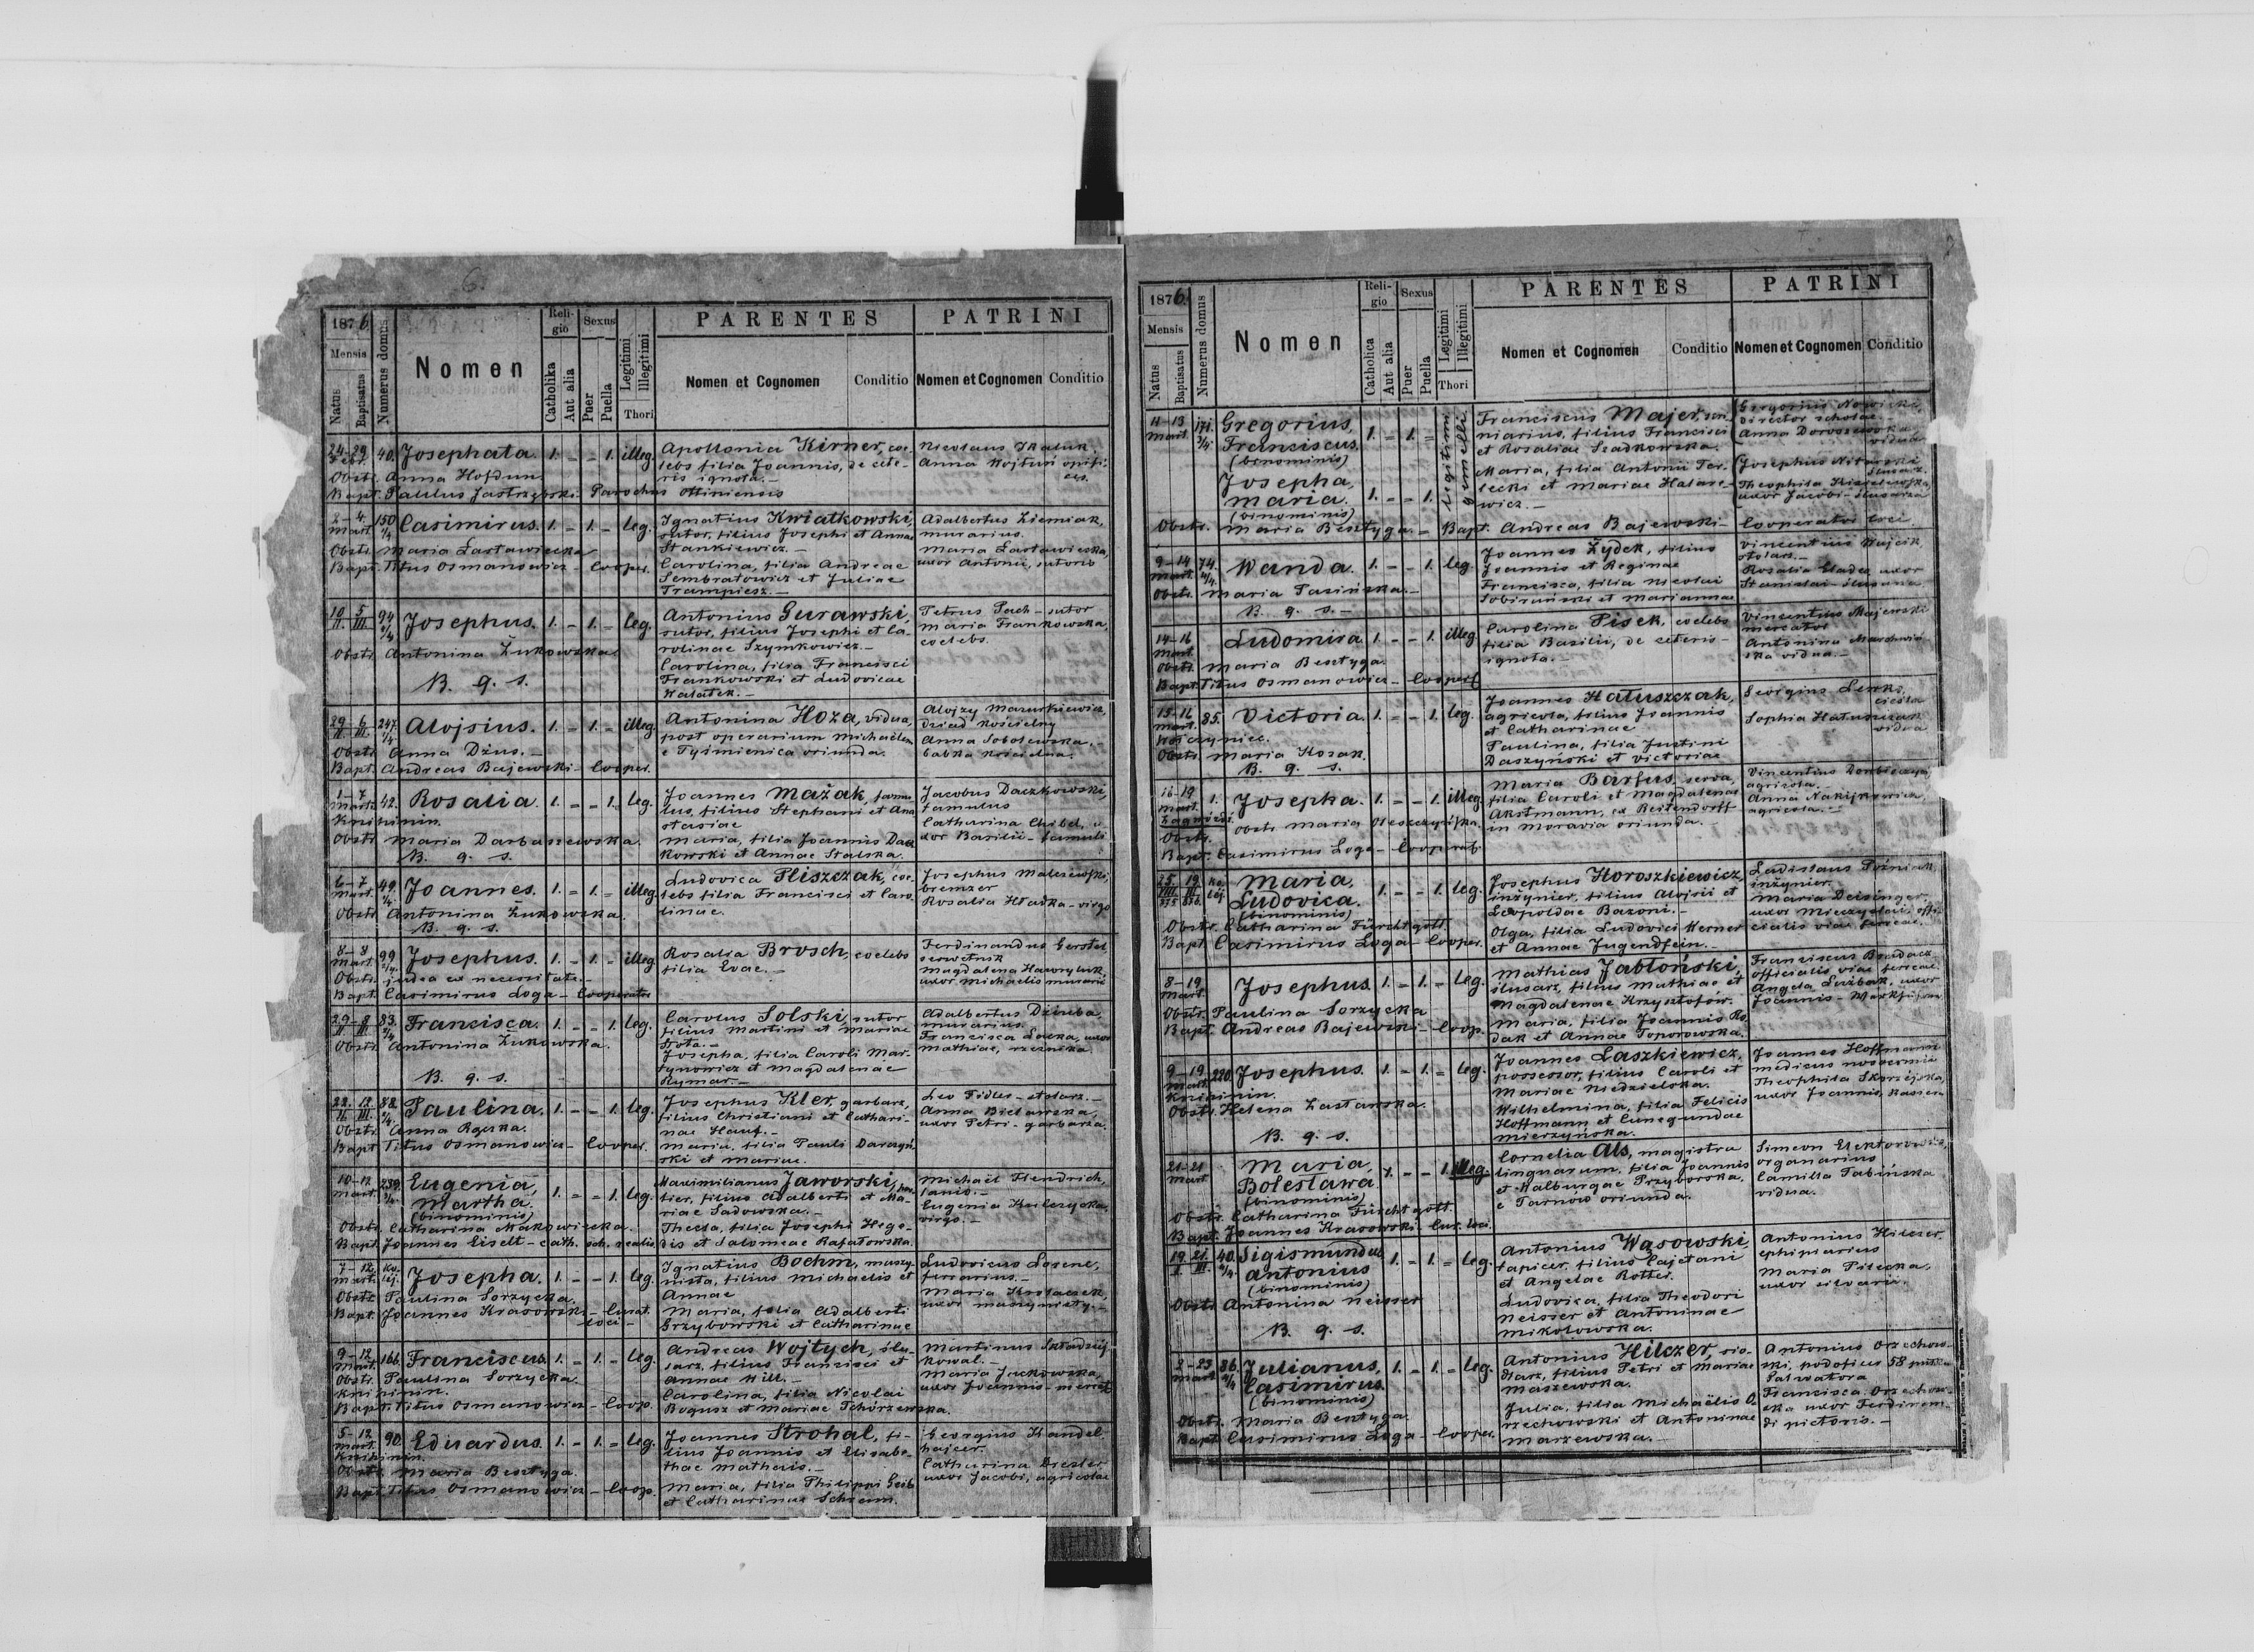 6.
1876.
Mensis
Natus
Baptisatus
Numerus domus
Nomen
Reli-
gio
Catholika
Aut alia
Sexus
Puer
Puella
Legitimi
Illegitimi
Thori
PARENTES
Nomen et Cognomen
Conditio
PATRINI
Nomen et Cognomen
Conditio
24-29 Febr. 40. Josephata. 1. = - 1. illeg. Apollonia Kirner, coe-
lebs filia Joannis, de cete-
ris ignota. —
Nicolaus
Anna Wojtusi opifi-
cis.
Obstr. Anna Hofdun
Bapt. Paulus Jastrzębski Parochus Ottiniensis
2-4. Mart. 150 1/4 Casimirus. 1. - 1. - leg. Ignatius Kwiatkowski,
sutor, filius Josephi et Annae
Stankiewicz. —
Carolina, filia Andreae
Sembratowicz et Juliae
Trampiesz. —
Adalbertus Ziemiak,
murarius.
Maria Lastawiecka,
uxor Antonii, sutoris
Obstr. Maria Lastawiecka
Bapt. Titus Osmanowicz - Cooper.
10 II. 5 III. 94 Josephus. 1. - 1. - leg. Antonius Gurawski,
sutor, filius Josephi et Ca-
rolinae Szymkowicz. —
Carolina, filia Francisci
Frankowski et Ludovicae
Walatek. —
Petrus Pach - sutor
Maria Frankowska,
coelebs.
Obstr. Antonina Żukowska
B. q. s.
29 II. 6 III. 247. Alojsius. 1. = 1. = illeg. Antonina Hoza, vidua,
post operarium Michaëlem
e Tyśmienica oriunda.
Alojzy Mazurkiewicz,
dziad kościelny
Anna Sobolewska,
babka kościelna.
Obstr. Anna Dżus. —
Bapt. Andreas Bajewski - Cooper.
1-7 Mart. 42. Rosalia. 1. = - 1. leg. Joannes Mażak, famu-
lus, filius Stephani et Ana-
stasiae
Maria, filia Joannis Dacz-
kowski et Annae Stalska.
Jacobus Daczkowski,
famulus
Catharina Chibel, u-
xor Basilii - famuli
Knihinin.
Obstr. Maria Darbaszewska.
B. q. s.
6-7 Mart. 49. Joannes. 1. = 1. = illeg. Ludovica Pliszczak, coe-
lebs filia Francisci et Caro-
linae.
Josephus Malczewski,
bremzer
Rosalia Hładka - virgo
Obstr. Antonina Żukowska.
B. q. s.
8-8 Mart. 99 Josephus. 1. - 1. - illeg. Rosalia Brosch, coelebs
filia Evae. —
Ferdinandus Gerstel,
serwetnik
Magdalena Hawryluk,
uxor Michaëlis murarii
Obstr. judea ex necessitate. —
Bapt. Casimirus Loga - Cooperator
29 II. 8 III. 83. Francisca. 1. = - 1. leg. Carolus Solski, sutor
filius Martini et Mariae
Josepha, filia Caroli Mar-
tynowicz et Magdalenae
Rymar. —
Adalbertus Dziuba,
murarius.
Francisca Lacka, uxor
Mathiae, rzeźnika
Obstr. Antonina Żukowska.
B. q. s.
22. II. 12. III. 88. Paulina. 1. = - 1. leg. Josephus Kler, garbarz,
filius Christiani et Cathari-
nae Hauf. —
Maria, filia Pauli Daraszyń-
ski et Mariae.
Leo Fidler - stolarz. —
Anna Bielawska,
uxor Petri - garbarza.
Obstr. Anna
Bapt. Titus Osmanowicz - Cooper.
10-12 Mart. 239. Eugenia, Martha. (binominis) 1. = - 1. leg. Maximilianus Jaworski,
filius Adalberti et Ma-
riae Sadowska. —
Thecla, filia Josephi Hege-
dis et Salomeae Rafałowska.
Michaël Hendrich,
Eugenia Kulczycka,
virgo. —
Obstr. Catharina Makowiecka.
Bapt. Joannes Eiselt - cath. sch. realis.
7-12. Mart. Kolej. Josepha. 1. = - 1. leg. Ignatius Boehm, maszy-
nista, filius Michaelis et
Annae
Maria, filia Adalberti
Grzybowski et Catharinae
Ludovicus
ferrarius. —
Maria Krotaczek,
uxor maszynisty. —
Obstr. Paulina Sorzycka.
Bapt. Joannes Krasowski - Curat.
loci —
9-12 Mart. 166. Franciscus. 1. - 1. - leg. Andreas Wojtych, ślu-
sarz, filius Francisci et
Annae Will. —
Carolina, filia Nicolai
Bogusz et Mariae Tchórzewska.
Martinus
Kowal. —
Maria Juckowska,
uxor Joannis -
Obstr. Paulina Sorzycka.
Knihinin.
Bapt. Titus Osmanowicz - Coop.
5-12 Mart. 90. Eduardus. 1. - 1. = leg. Joannes Strohal, fi-
lius Joannis et Elisabe-
thae Matheis. —
Maria, filia Philippi Geib
et Catharinae Schramm.
Georgius Kandel
hajcer.
Catharina Drexler
uxor Jacobi, agricolae
Knihinin.
Obstr. Maria Besztyga.
Bapt. Titus Osmanowicz - Coop.
1876.
Mensis
Natus
Baptisatus
Numerus domus
Nomen
Reli-
gio
Catholica
Aut alia
Sexus
Puer
Puella
Legitimi
Illegitimi
Thori
PARENTES
Nomen et Cognomen
Conditio
PATRINI
Nomen et Cognomen
Conditio
11-13 Mart. 171. 3/4. Gregorius, Franciscus. (binominis) 1. = 1. = Legitimi gemelli
Franciscus Majer,
filius Francisci
et Rosaliae Szadkowska.
Gregorius Nowicki,
director scholae.
Anna Doroszewska
vidua.
Josepha, Maria. (binominis) 1. - - 1. Maria, filia Antonii Ter-
lecki et Mariae Halare-
wicz. —
Josephus Nitarski
ślusarz.
Theophila Kisielewska,
uxor Jacobi - ślusarza
Obstr. Maria Besztyga. - Bapt. Andreas Bajewski - Cooperator loci
9-14 Mart. 74. Wanda. 1. - - 1. leg. Joannes Żydek, filius
Joannis et Reginae
Francisca, filia Nicolai
Sobirański et Mariannae
Vincentius Wujcik,
stolarz. —
Rosalia Gladka, uxor
Stanislai - ślusarza
Obstr. Maria Pasińska. —
B. q. s. —
14-16 Mart. Ludomira. 1. - - 1. illeg. Carolina Pisek, coelebs
filia Basilii, de ceteris
ignota. —
Vincentius Majewski
mercator
Antonina
vidua. —
Obstr. Maria Besztyga.
Bapt. Titus Osmanowicz - Cooper.
15-16 Mart. 85. Victoria. 1. - - 1. leg. Joannes Hatuszczak,
agricola, filius Joannis
et Catharinae
Paulina, filia Justini
Daszyński et Victoriae
Georgius Lenko,
cieśla
Sophia Hatuszczak
vidua
Wołczyniec.
Obstr. Maria Kosak.
B. q. s.
16-19 Mart. 1. Josepha. 1. - - 1. illeg. Maria Barfus, serva,
filia Caroli et Magdalenae
Akstmann, ex Beitendorff
in Moravia oriunda.
Vincentius
agricola. —
Anna
agricola. —
Zagwóźdź. Obstr. Maria Oleszczyńska.
Obstr.
Bapt. Casimirus Loga - Cooperat.
25. VIII. 875 19 III. 876. Kolej. Maria, Ludovica. (binominis) 1. - - 1. leg. Josephus Horoszkiewicz,
inżynier, filius Alojsii et
Leopoldae Bazoni. —
Olga, filia Ludovici Werner
et Annae Jugendfein. —
Ladislaus
inżynier.
Maria Deisinger,
uxor Mieczyslai, offi-
cialis viae ferreae.
Obstr. Catharina Fürchtgott.
Bapt. Casimirus Loga - Cooper.
8-19 Mart. Josephus. 1. - 1. = leg. Mathias Jabłoński,
ślusarz, filius Mathiae et
Magdalenae Krzysztofów.
Maria, filia Joannis Ro-
dak et Annae Toporowska.
Franciscus
officialis viae ferreae.
Angela Luzbak, uxor
Joannis - Werkführer
Obstr. Paulina Sorzycka
Bapt. Andreas Bajewski - Coop.
9-19. Mart. 220. Josephus. 1. - 1. = leg. Joannes Laszkiewicz,
possessor, filius Caroli et
Mariae Niedzielska.
Wilhelmina, filia Felicis
Hoffmann et Cunegundae
Mierzyńska.
Joannes Hoffmann
medicus
Theophila
uxor Joannis,
Knihinin.
Obstr. Helena Zastawska.
B. q. s.
21-21 Mart. Maria, Boleslawa. (binominis) 1. - - 1. illeg. Cornelia Als, magistra
linguarum, filia Joannis
et Walburgae Przyborska,
e Tarnów oriunda.
Simeon
organarius
Camilla Tabińska
vidua.
Obstr. Catharina Fürchtgott.
Bapt. Joannes Krasowski - Cur. loci.
19 I. 21. III. 40. Sigismundus Antonius (binominis) 1. - 1. = leg. Antonius Wąsowski,
tapicer, filius Cajetani
et Angelae Rottei.
Ludovica, filia Theodori
Neisser et Antoninae
Mikołowska.
Antonius Hilczer
ephipiarius
Maria Pilecka,
uxor silvarii.
Obstr. Antonina Neisser
B. q. s.
2-23 Mart. 86. Julianus, Casimirus. (binominis) 1. = 1. = leg. Antonius Hilczer, sio-
dlarz, filius Petri et Mariae
Maszewska.
Julia, filia Michaëlis O-
rzechowski et Antoninae
Marzewska. —
Antonius Orzechow-
ski, podoficer 58 pułku
Salwatora
Francisca Orzechow-
ska uxor Ferdinan-
di pictoris. —
Obstr. Maria Besztyga.
Bapt. Casimirus Loga - Cooper.